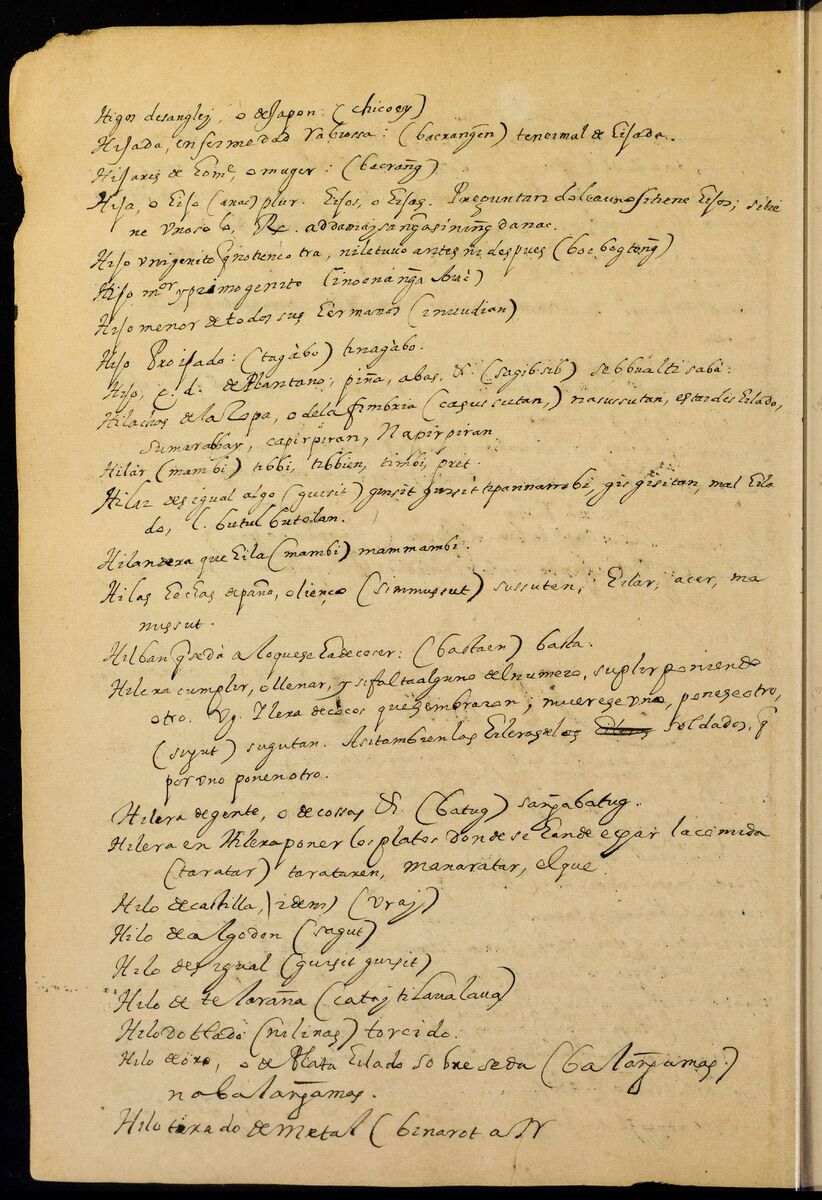 Higos desangley, o deJapon: (chicoey)
Hijada, enfermedad rabiossa: (bacrangen) tenermal de hijada.
Hijares de home, o muger: (bacrang)
Hija, o hijo (anac) plur. hijos, o hijas. Preguntan
ne unosolo, Re. addamaysangasininganac.
Hijo unigenito qnotieneotra, niletuuo antes ni despues (bocbogtong)
Hijo mor yprimogenito (inoonanga Anac)
Hijo menor de todos sus hermanos (inuudian)
Hijo Proijado: (tagàbo) tinagàbo.
Hijo, q. d. de Plantano, piña, abas, &. (sagibsib) sebbualti sabà:
Hilachos de la Ropa, o dela fimbria (casussutan,) nasussutan, estardeshilado,
Sumarabay, capirpiran, Napirpiran.
Hilar (mambi) tibbi, tibbien, timbi, pret.
Hilar desigual algo (gursit) gursit gursit tipannambi, gisgisitan, mal hila
do, l. butulbutolan.
Hilandera que hila (mambi) mammambi.
Hilas hechas depaño, olienço (simmussut) sussuten, hilar, acer, ma
nussut.
Hilban qsedà aloquese hadecoser: (bastaen) basta.
Hilera cumplir, ollenar, y sifaltaalguno delnumero, suplir poniendo
otro. Vg. Ilera decocos quesembraron; muerese uno, poneseotro,
(suyut) sugutan. Asitambienlas hileras delos soldados, q
por uno ponen otro.
Hilera de gente, o decossas &. (batug) sangabatug.
Hilera en Hilera poner los platos Donde se hande echar lacomida
(taratar) tarataren, manaratar, elque.
Hilo decastilla, idem (uras)
Hilo de algodon (sagut)
Hilo desigual (gursit gursit)
Hilo de telaraña (catoy tilaualaua)
Hilo doblado (nilinas) torcido.
Hilo deoro, o de Plata hilado sobre seda (balangamas.)
nabalangamas.
Hilo tirado de metal (binarot a